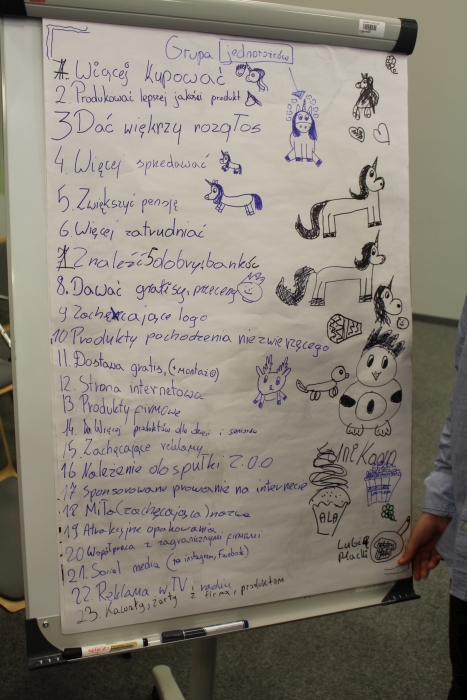 Grupa jednorożców
1. Więcej Kupować
2. Produkować lepszej jakości produkt
3 Dać więkrzy rozgłos
4. Więcej sprzedawać
5. Zwiększyć pensję
6. Więcej zatrudniać
7. Znaleźć 5 dobrych banków
8. Dawać gratisy, przeceny
9 Zachęcające logo
10 Produkty pochodzenia nie zwierzęcego
11. Dostawa gratis, (+Montaż)
12. Strona internetowa
13. Produkty firmowe
14. Więcej produktów dla dzieci i seniorów
15. Zachęcające reklamy
16 Należenie do spułki Z.O.O
17 Sponsorowane prowanie na internecie
18 Miła (zachęcająca) nazwa
19 Atrakcyjne opakowania
20 Współpraca z zagranicznymi firmami
21. Social media (np instagram, Facebook)
22 Reklama w TV i radiu
23. Kawały, żarty z firmą i produktem
ALA
Lubię
placki